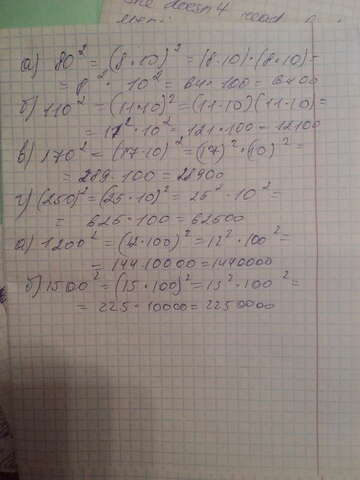 the doesn't read
а) 80² = (8·10)² = (8·10)·(8·10)=
= 8² · 10² = 64·100 = 6400
б) 110² = (11·10)² = (11·10)(11·10)=
= 11²·10² = 121·100 = 12100
в) 170² = (17·10)² = (17)²·(10)² =
= 289·100 = 28900
г) (250)² = (25·10)² = 25²·10² =
= 625·100 = 62500
а) 1200² = (12·100)² = 12²·100² =
= 144·10000 = 1440000
б) 1500² = (15·100)² = 15²·100² =
= 225·10000 = 2250000